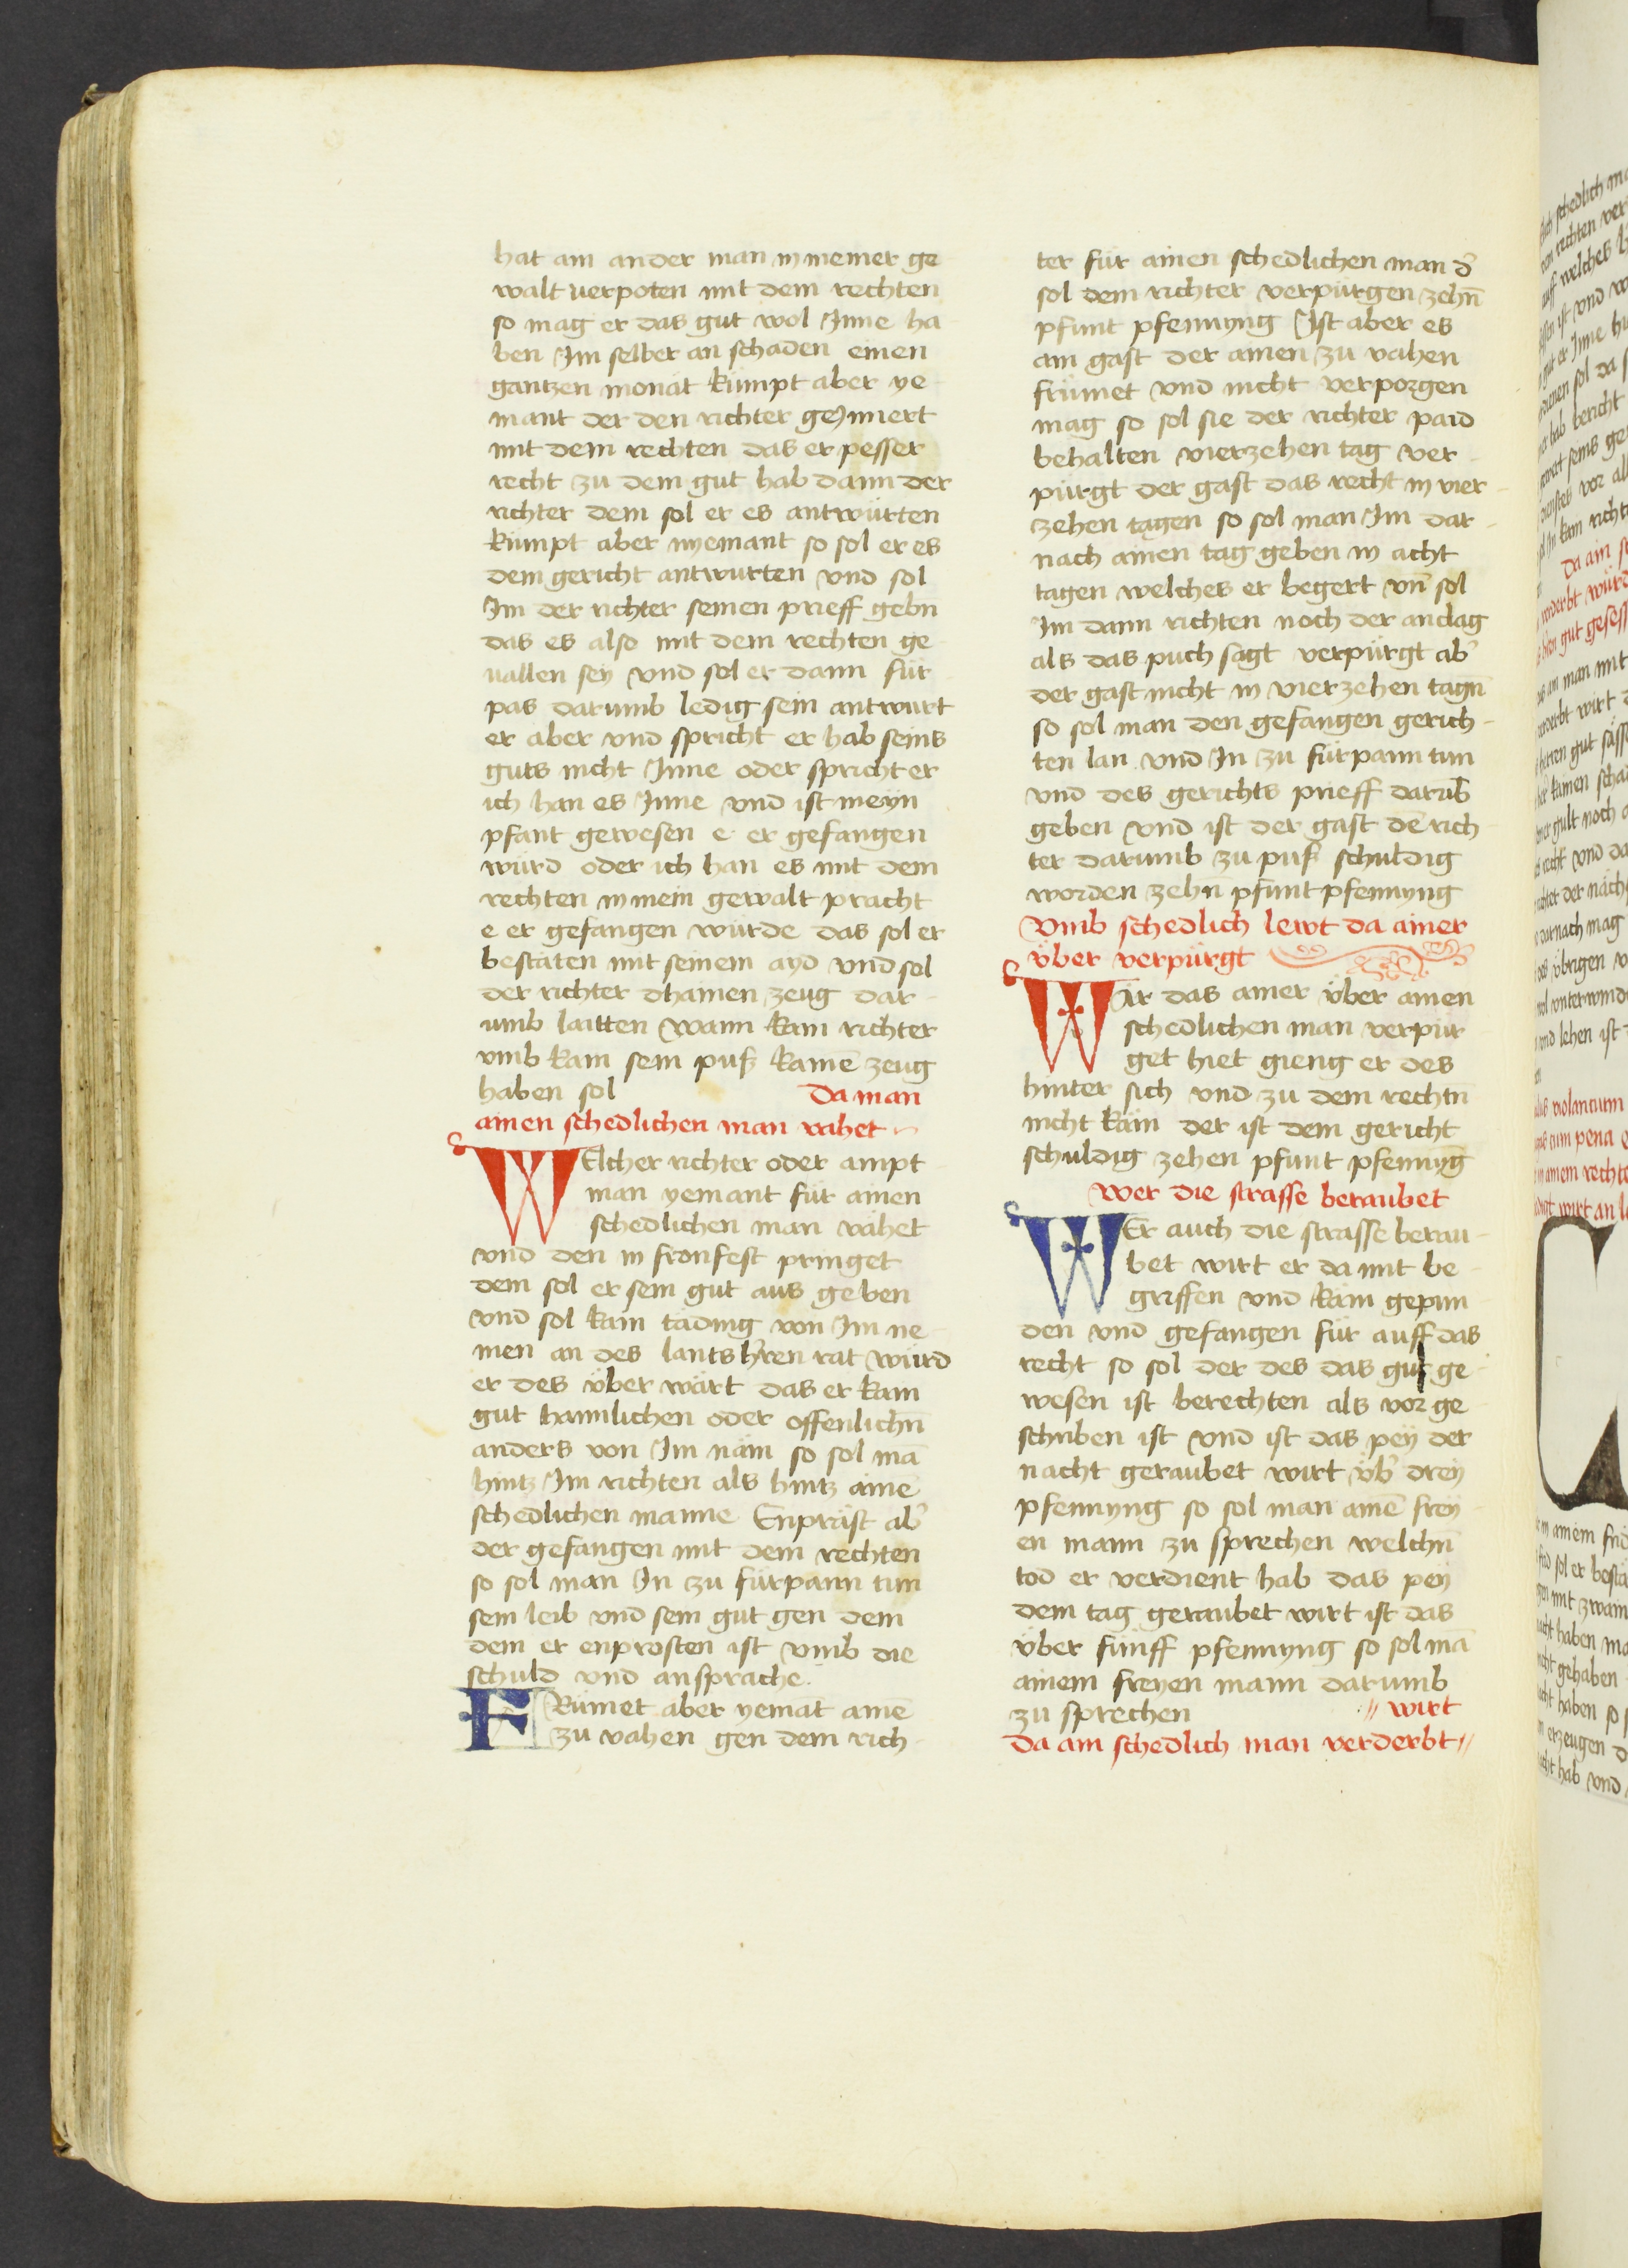 hat ain ander man in meiner ge
walt verpoten mit dem rechten
so mag er das gut wol Inne ha
ben Im selber an schaden einen
gantzen monat kumpt aber ye
mant der den richter geJnnert
mit dem rechten das er pesser
recht zu dem gut hab dann der
richter dem sol er es antwürten
kumpt aber nyemant so sol er es
dem gericht antwurten vnd sol
Im der richter seinen prieff gebn̄
das es also mit dem rechten ge
uallen sey vnd sol er dann für
pas darumb ledig sein antwurt
er aber vnd spricht er hab seins
guts nicht Inne oder spricht er
ich han es Inne vnd ist meyn
pfant gewesen e er gefangen
würd oder ich han es mit dem
rechten in mein gewalt pracht
e er gefangen würde das sol er
bestäten mit seinem ayd vnd sol
der richter dhainen zeug dar
umb laitten wann kain richter
vmb kain sein puß kainē zeug
haben sol Da man
ainen schedlichen man vahet
WElcher richter oder ampt
man yemant für ainen
schedlichen man vahet
vnd den in fronfest pringet
dem sol er sein gut aus geben
vnd sol kain täding von Im ne
men an des lantshr̄en rat würd
er des über wärt das er kain
gut hainlichen oder offenlichn̄
anders von Im näm so sol mā
hintz Im richten als hintz ainē
schedlichen manne Enpräst ab̄
der gefangen mit dem rechten
so sol man In zu fürpann tun
sein leib vnd sein gut gen dem
dem er enprosten ist vmb die
schuld vnd ansprache
FRümet aber yemāt ainē
zu vahen gen dem rich
ter für ainen schedlichen man d̄
sol dem richter verpürgen zehn̄
pfunt pfennyng Ist aber es
ain gast der ainen zu vahen
frümet vnd nicht verporgen
mag so sol sie der richter paid
behalten vierzehen tag ver
pürgt der gast das recht in vier
zehen tagen so sol man Im dar
nach ainen tag geben in acht
tagen welches er begert vn̄ sol
Im dann richten noch der anclag
als das puch sagt verpürgt ab̄
der gast nicht in vierzehen tagn̄
so sol man den gefangen gerich
ten lan vnd In zu fürpann tun
vnd des gerichts prieff darüb̄
geben vnd ist der gast dē rich
ter darumb zu puß schuldig
worden zehn̄ pfunt pfennyng
Vmb schedlich lewt da ainer
über verpürgt
WÄr das ainer über ainen
schedlichen man verpür
get hiet gieng er des
hinter sich vnd zu dem rechtn̄
nicht käm der ist dem gericht
schuldig zehen pfunt pfennyḡ
Wer die strasse beraubet
WEr auch die strasse berau
bet wirt er da mit be
griffen vnd käm gepun
den vnd gefangen für auff das
recht so sol der des das gut ge
wesen ist berechten als vor ge
schriben ist vnd ist das pey der
nacht geraubet wirt üb̄ drey
pfennyng so sol man ainē frey
en mann zu sprechen welchn̄
tod er verdient hab das pey
dem tag geraubet wirt ist das
über fünff pfennyng so sol mā
ainem freyen mann darumb
zu sprechen wirt
Da ain schedlich man verderbt